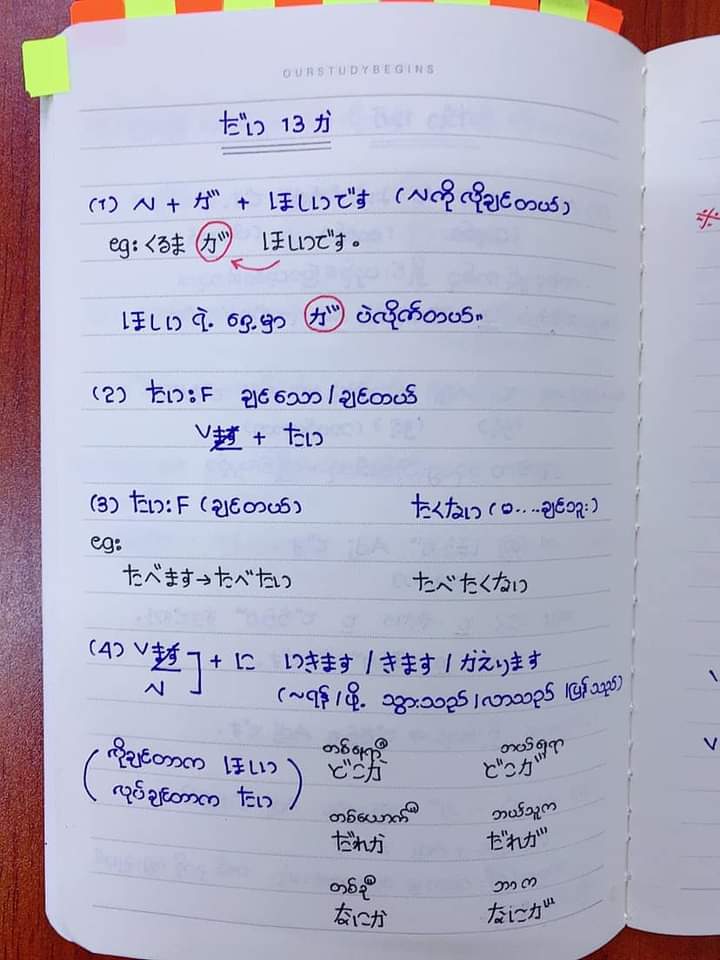 OURSTUDYBEGINS
だい 13 か
(1) N + が + ほしいです (N ကို လိုချင်တယ်)
eg: くるま が ほしいです。
ほしい ရဲ့ ရှေ့မှာ が ပဲလိုက်တယ်။
(2) たい: F ချင်သော / ချင်တယ်
Vます + たい
(3) たい: F (ချင်တယ်) たくない (မ....ချင်ဘူး)
eg:
たべます→たべたい たべたくない
(4) Vます
N
+ に いきます / きます / かえります
(~ရန် / ဖို့ သွားသည် / လာသည် / ပြန်သည်)
(လိုချင်တာက ほしい
လုပ်ချင်တာက たい)
တစ်နေရာရာ ဘယ်နေရာ
どこか どこが
တစ်ယောက်ယောက် ဘယ်သူက
だれか だれが
တစ်ခုခု ဘာက
なにか なにが
※
V